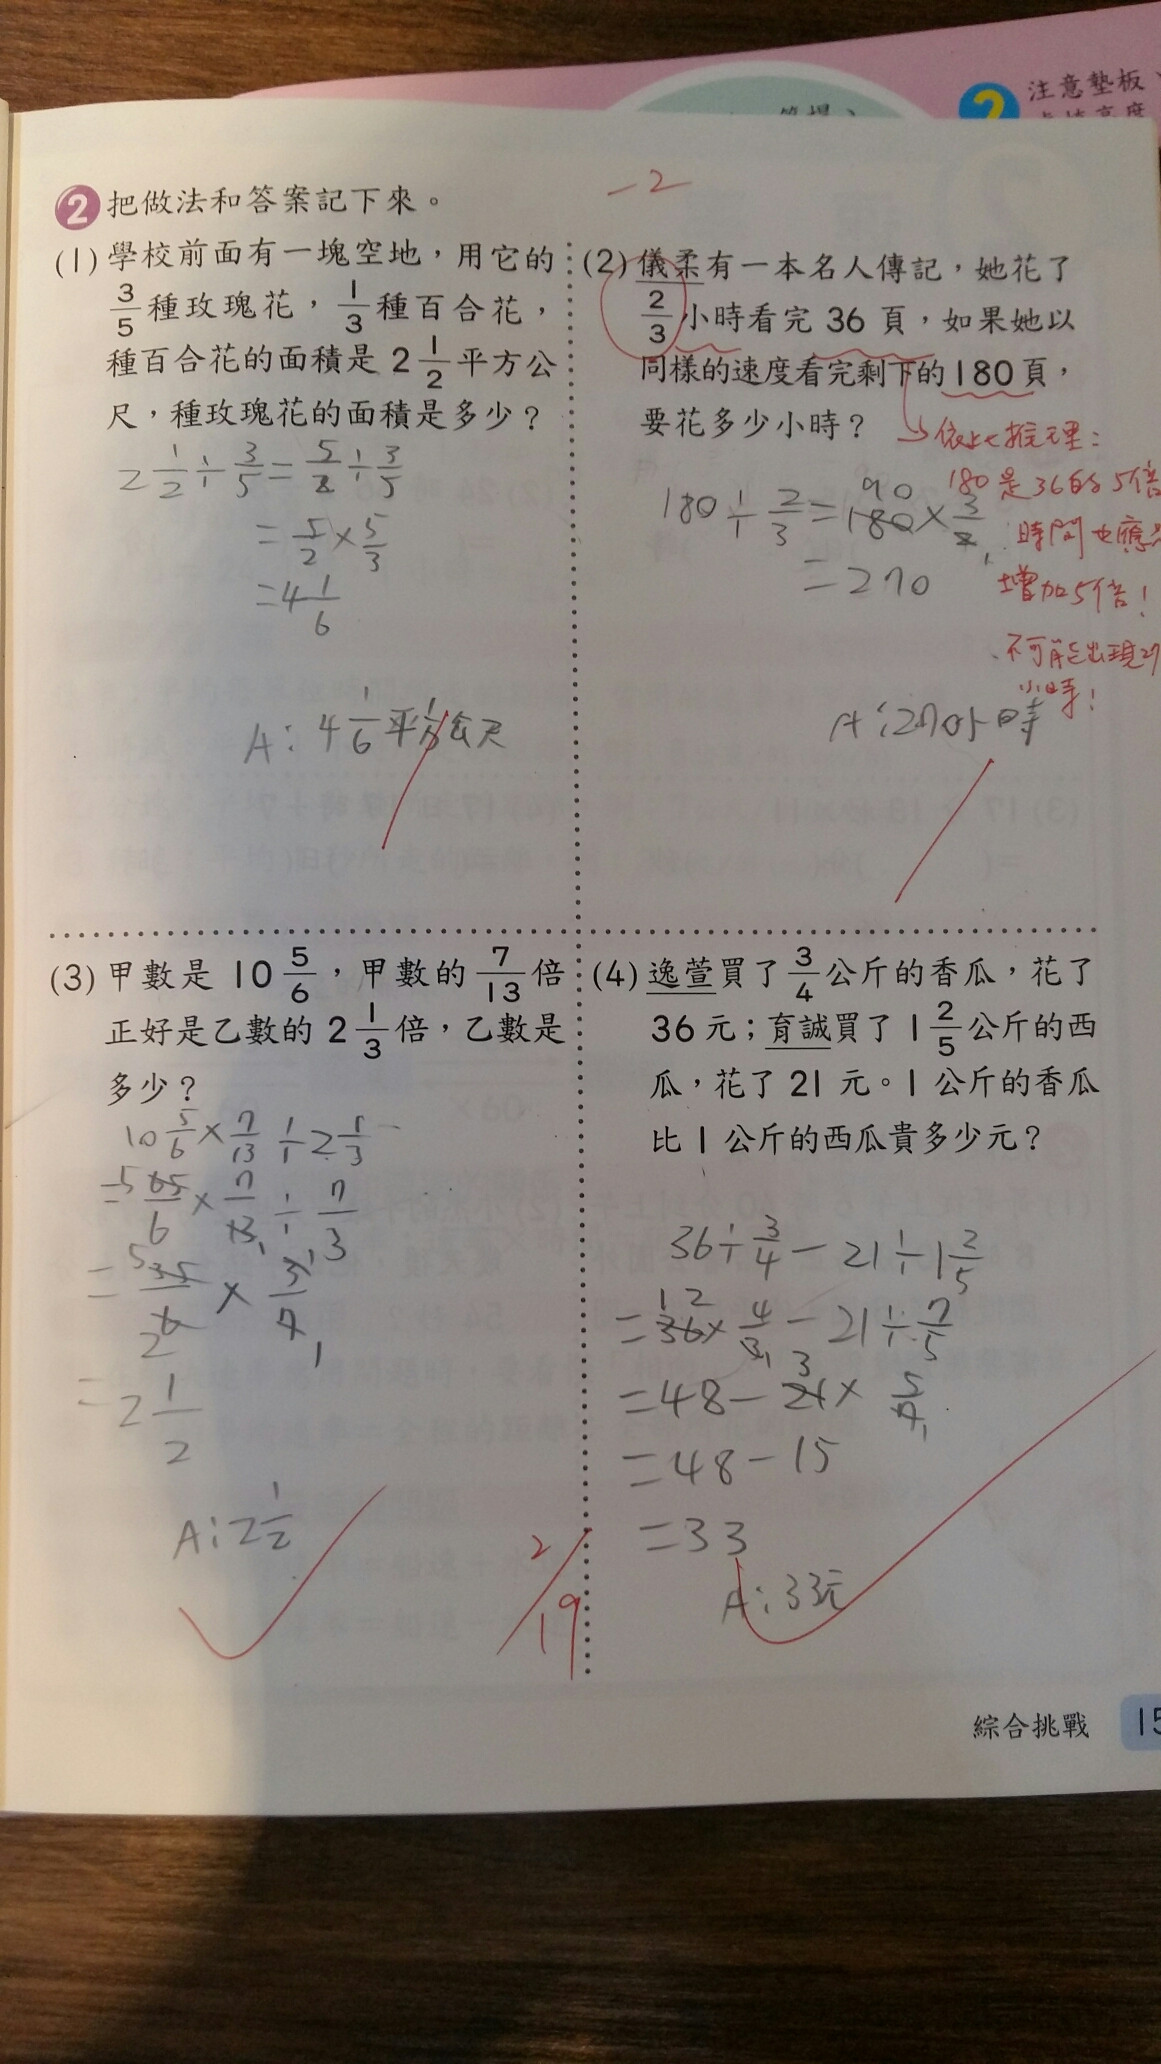 2 注意墊板、
-2
2 把做法和答案記下來。
(1) 學校前面有一塊空地，用它的
3/5 種玫瑰花，1/3 種百合花，
種百合花的面積是 2 1/2 平方公
尺，種玫瑰花的面積是多少？
2 1/2 ÷ 3/5 = 5/2 ÷ 3/5
= 5/2 × 5/3
= 4 1/6
A: 4 1/6 平方公尺
(2) 儀柔有一本名人傳記，她花了
2/3 小時看完 36 頁，如果她以
同樣的速度看完剩下的 180 頁，
要花多少小時？
→ 依此推理：
180 是 36 的 5 倍
時間也應
增加 5 倍！
不可能出現 27
小時！
180 ÷ 2/3 = 180 × 3/2
90
1
= 270
A: 270小時
(3) 甲數是 10 5/6，甲數的 7/13 倍
正好是乙數的 2 1/3 倍，乙數是
多少？
10 5/6 × 7/13 ÷ 2 1/3
= 65/6 × 7/13 ÷ 7/3
5
1
= 35/6 × 3/7
5
1
2
1
= 2 1/2
A: 2 1/2
(4) 逸萱買了 3/4 公斤的香瓜，花了
36 元；育誠買了 1 2/5 公斤的西
瓜，花了 21 元。1 公斤的香瓜
比 1 公斤的西瓜貴多少元？
36 ÷ 3/4 - 21 ÷ 1 2/5
= 36 × 4/3 - 21 ÷ 7/5
12
1
= 48 - 21 × 5/7
3
1
= 48 - 15
= 33
A: 33元
2/19
綜合挑戰
15